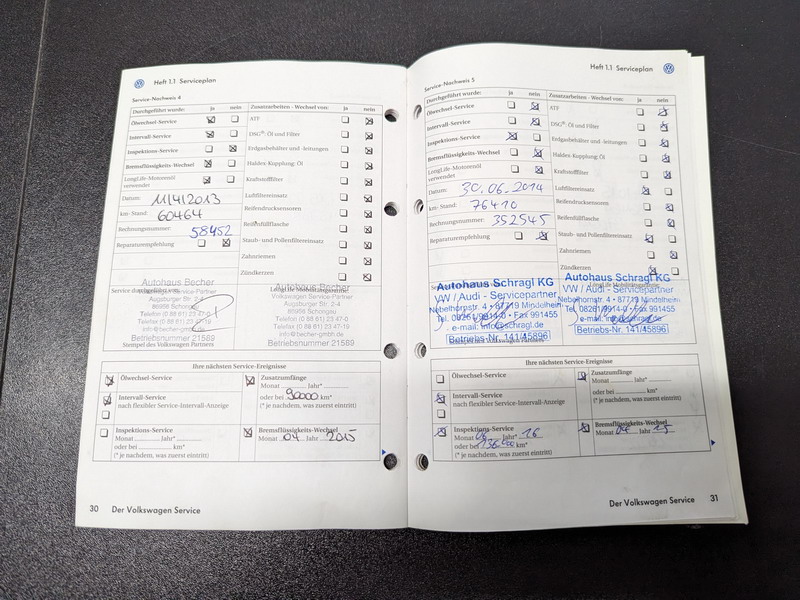 Heft 1.1 Serviceplan
Service-Nachweis 4
Durchgeführt wurde: Ja nein
Ölwechsel-Service
Intervall-Service
Inspektions-Service
Bremsflüssigkeits-Wechsel
LongLife-Motorenöl
verwendet
Datum: 11/4/2013
km- Stand: 60464
Rechnungsnummer: 58452
Reparaturempfehlung
Zusatzarbeiten - Wechsel von: ja nein
ATF
DSG®- Öl und Filter
Erdgasbehälter und -leitungen
Haldex-Kupplung: Öl
Kraftstofffilter
Luftfiltereinsatz
Reifendrucksensoren
Reifenfüllflasche
Staub- und Pollenfiltereinsatz
Zahnriemen
Zündkerzen
Service durchgeführt von:
LongLife Mobilitätsgarantie:
Autohaus Becher
Volkswagen Service-Partner
Augsburger Str. 2-4
86956 Schongau
Telefon (0 88 61) 23 47-0
Telefax (0 88 61) 23 47-19
info@becher-gmbh.de
Betriebsnummer 21589
Autohaus Becher
Volkswagen Service-Partner
Augsburger Str. 2-4
86956 Schongau
Telefon (0 88 61) 23 47-0
Telefax (0 88 61) 23 47-19
info@becher-gmbh.de
Betriebsnummer 21589
Stempel des Volkswagen Partners
Ihre nächsten Service-Ereignisse
Ölwechsel-Service
Intervall-Service
nach flexibler Service-Intervall-Anzeige
Inspektions-Service
Monat Jahr*
oder bei km*
(* je nachdem, was zuerst eintritt)
Zusatzumfänge
Monat Jahr*
oder bei 90000 km*
(* je nachdem, was zuerst eintritt)
Bremsflüssigkeits-Wechsel
Monat 04 Jahr 2015
30 Der Volkswagen Service
Heft 1.1 Serviceplan
Service-Nachweis 5
Durchgeführt wurde: Ja nein
Ölwechsel-Service
Intervall-Service
Inspektions-Service
Bremsflüssigkeits-Wechsel
LongLife-Motorenöl
verwendet
Datum: 30.06.2014
km- Stand: 76410
Rechnungsnummer: 352545
Reparaturempfehlung
Zusatzarbeiten - Wechsel von: ja nein
ATF
DSG®- Öl und Filter
Erdgasbehälter und -leitungen
Haldex-Kupplung: Öl
Kraftstofffilter
Luftfiltereinsatz
Reifendrucksensoren
Reifenfüllflasche
Staub- und Pollenfiltereinsatz
Zahnriemen
Zündkerzen
Autohaus Schragl KG
VW / Audi - Servicepartner
Nebelhornstr. 4 • 87719 Mindelheim
Tel. 08261/9914-0 • Fax 991455
e-mail: info@schragl.de
Betriebs-Nr. 141/45896
LongLife Mobilitätsgarantie:
Autohaus Schragl KG
VW / Audi - Servicepartner
Nebelhornstr. 4 • 87719 Mindelheim
Tel. 08261/9914-0 • Fax 991455
Betriebs-Nr. 141/45896
Ihre nächsten Service-Ereignisse
Ölwechsel-Service
Intervall-Service
nach flexibler Service-Intervall-Anzeige
Inspektions-Service
Monat 06 Jahr* 16
oder bei km*
(* je nachdem, was zuerst eintritt)
Zusatzumfänge
Monat Jahr*
oder bei km*
(* je nachdem, was zuerst eintritt)
Bremsflüssigkeits-Wechsel
Monat 04 Jahr 15
Der Volkswagen Service 31